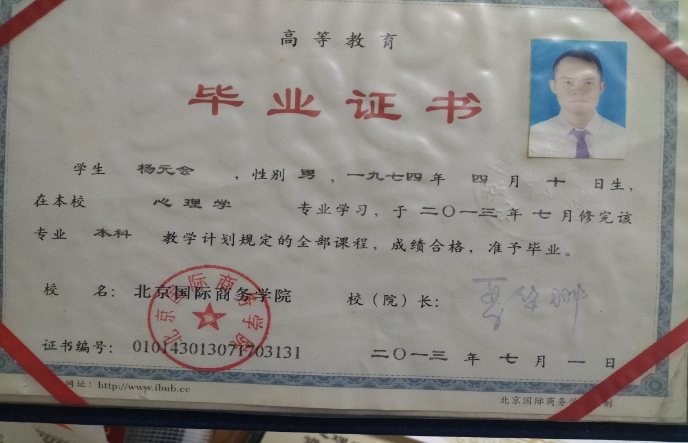 高等教育
毕业证书
学生 杨元会 ，性别 男 ，一九七四 年 四 月 十 日生，
在本校 心理学 专业学习，于 二〇一三 年 七 月修完该
专业 本科 教学计划规定的全部课程，成绩合格，准予毕业。
校 名：北京国际商务学院 校（院）长：
北京国际商务学院
证书编号：010143013071703131 二〇一三 年 七 月 一 日
网址：http://www.ihub.cc
北京国际商务学